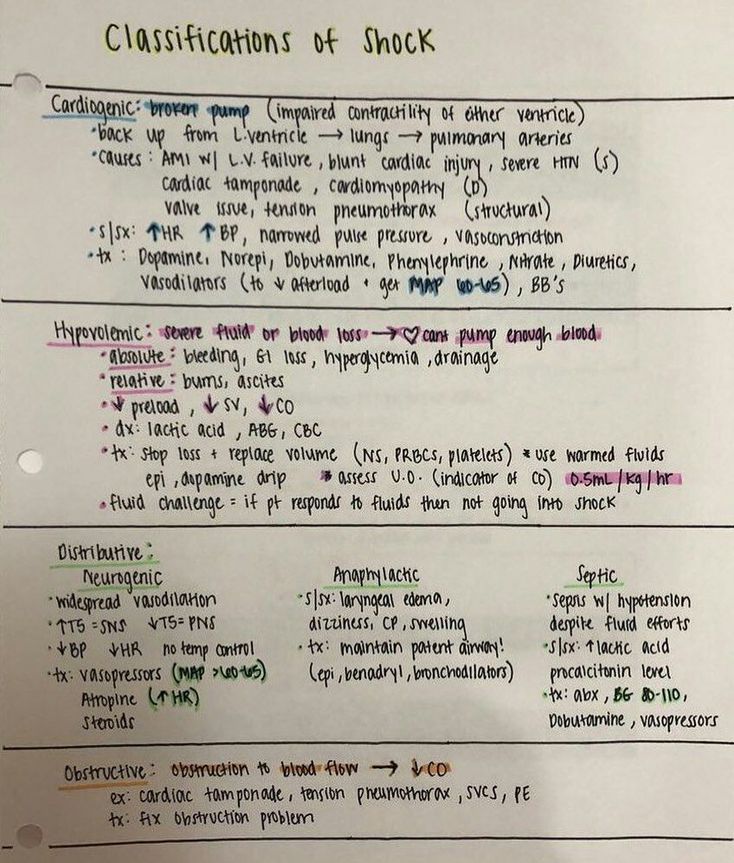 Classifications of Shock
Cardiogenic: broken pump (impaired contractility of either ventricle)
•back up from L.ventricle → lungs → pulmonary arteries
•causes: AMI w/ L.V. failure, blunt cardiac injury, severe HTN (s)
cardiac tamponade, cardiomyopathy (D)
valve issue, tension pneumothorax (structural)
•s/sx: ↑HR ↑BP, narrowed pulse pressure, vasoconstriction
•tx: Dopamine, Norepi, Dobutamine, Phenylephrine, Nitrate, Diuretics,
Vasodilators (to ↓ afterload + get MAP 60-65), BB's
Hypovolemic: severe fluid or blood loss → ♡ cant pump enough blood
•absolute: bleeding, GI loss, hyperglycemia, drainage
•relative: burns, ascites
•↓ preload, ↓ SV, ↓ CO
• dx: lactic acid, ABG, CBC
•tx: stop loss + replace volume (NS, PRBCs, platelets) * use warmed fluids
epi, dopamine drip * assess U.O. (indicator of CO) 0.5mL/kg/hr
•fluid challenge = if pt responds to fluids then not going into shock
Distributive:
Neurogenic
•widespread vasodilation
•↑T5=SNS ↓T5=PNS
•↓BP ↓HR no temp control
•tx: vasopressors (MAP >60-65)
Atropine (↑HR)
Steroids
Anaphylactic
•s/sx: laryngeal edema,
dizziness, CP, swelling
•tx: maintain patent airway!
(epi, benadryl, bronchodilators)
Septic
•sepsis w/ hypotension
despite fluid efforts
•s/sx: ↑lactic acid
procalcitonin level
•tx: abx, BG 80-110,
Dobutamine, vasopressors
Obstructive: obstruction to blood flow → ↓CO
ex: cardiac tamponade, tension pneumothorax, SVCS, PE
tx: fix obstruction problem